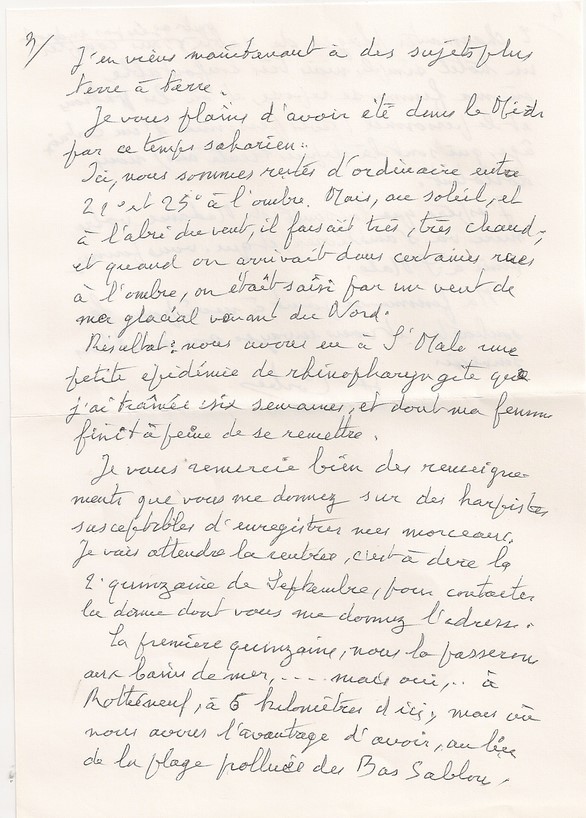 3/
J'en viens maintenant à des sujets plus
terre à terre.
Je vous plains d'avoir été dans le Midi
par ce temps saharien.
Ici, nous sommes restés d'ordinaire entre
22° et 25° à l'ombre. Mais, au soleil, et
à l'abri du vent, il faisait très, très chaud;
et quand on arrivait dans certaines rues
à l'ombre, on était saisi par un vent de
mer glacial venant du Nord.
Résultat: nous avons eu à St Malo une
petite epidémie de rhinopharyngite que
j'ai traînée six semaines, et dont ma femme
finit à peine de se remettre.
Je vous remercie bien des renseigne-
ments que vous me donnez sur des harpistes
susceptibles d'enregistrer mes morceaux.
Je vais attendre la rentrée, c'est à dire la
2e quinzaine de Septembre, pour contacter
la dame dont vous me donnez l'adresse.
La première quinzaine, nous la passerons
aux bains de mer,.... mais oui,.. à
Rothéneuf, à 5 kilomètres d'ici, mais où
nous avons l'avantage d'avoir, au lieu
de la plage polluée des Bas Sablons,